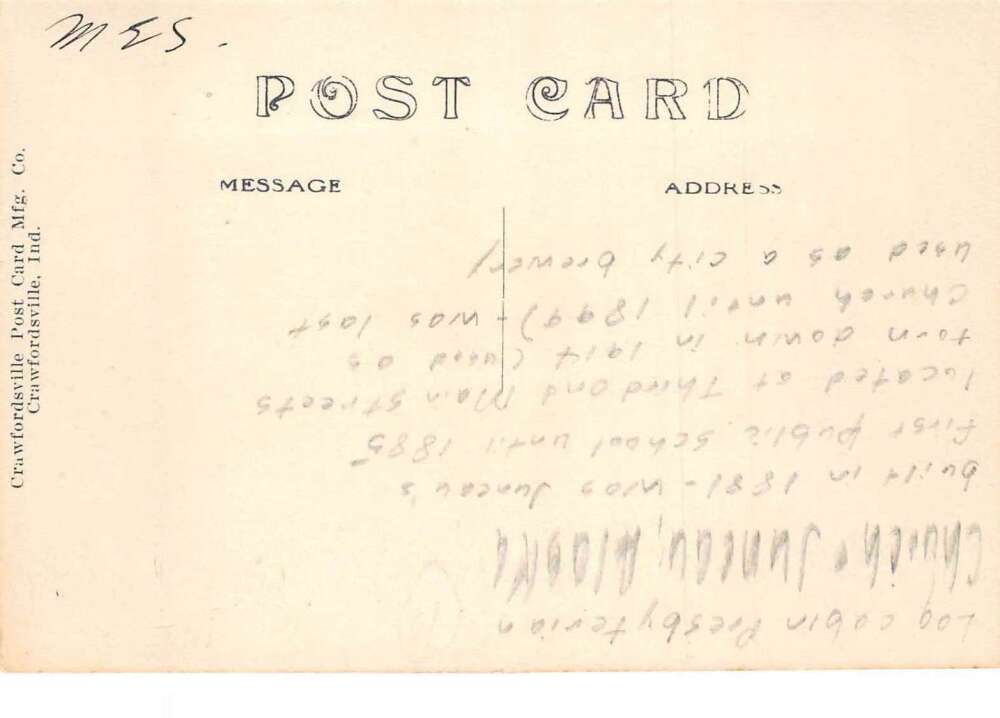 MES.
POST CARD
MESSAGE
ADDRESS
Crawfordsville Post Card Mfg. Co.
Crawfordsville, Ind.
Log cabin Presbyterian
Church - Juneau, Alaska
built in 1881 - was Juneau's
first public school until 1885
located at Third and Main streets
torn down in 1914 (used as
Church until 1899) - was last
used as a city brewery